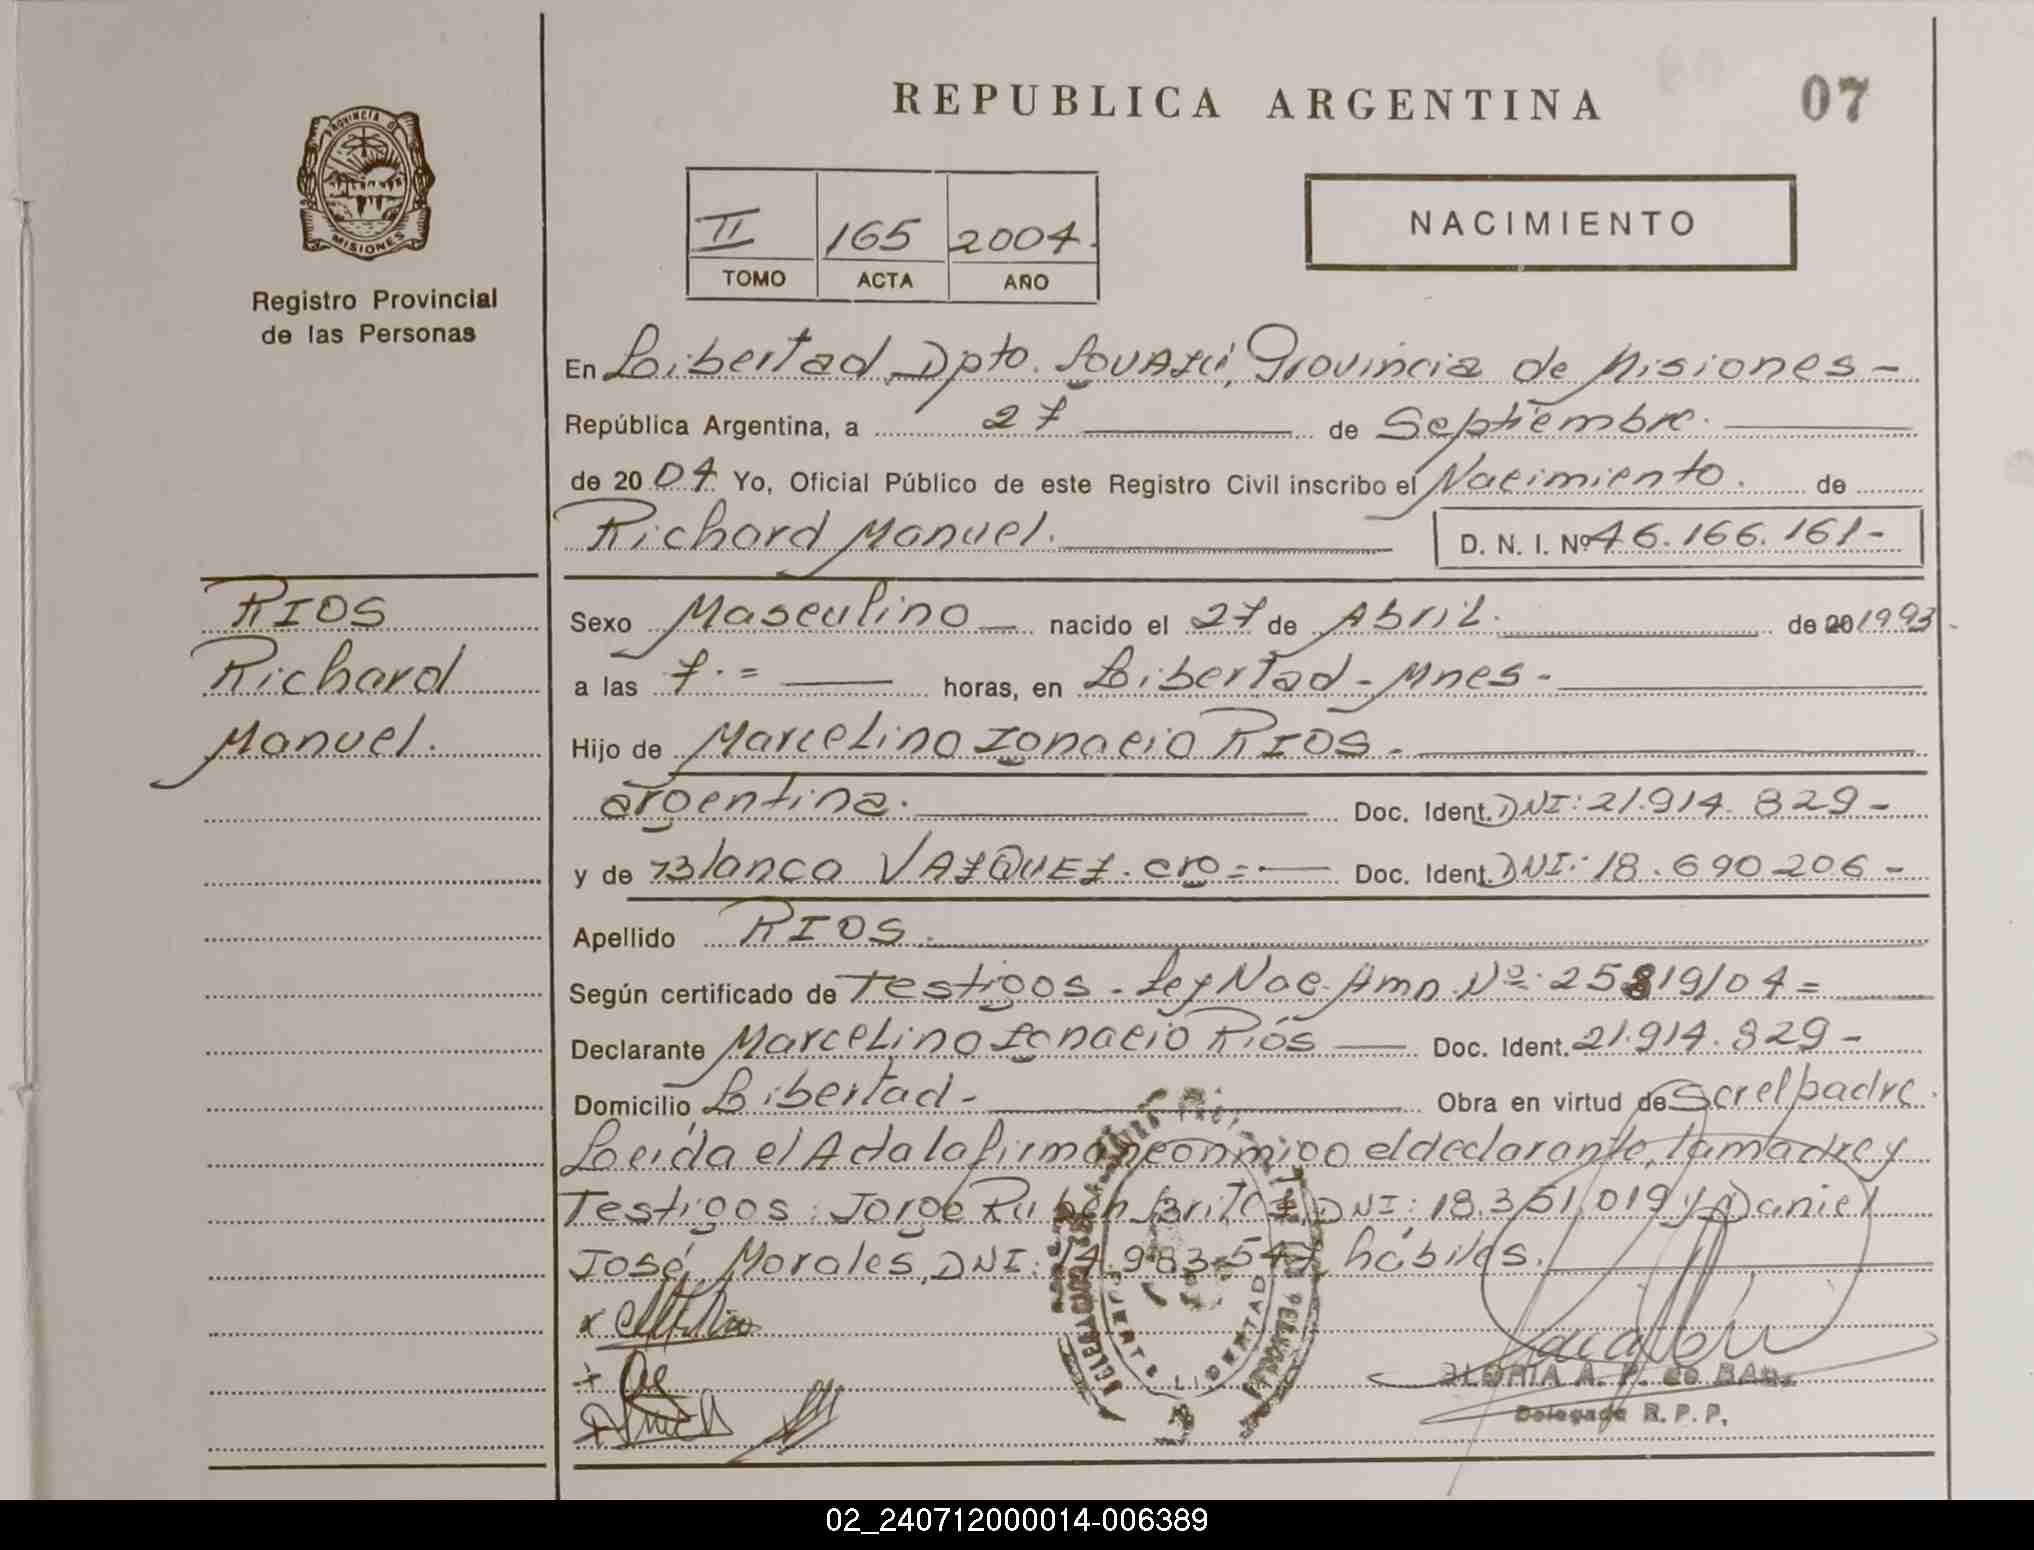 REPUBLICA ARGENTINA
07
PROVINCIA DE
MISIONES
Registro Provincial
de las Personas
II 165 2004.
TOMO ACTA AÑO
NACIMIENTO
En Libertad, Dpto. Iguazú, Provincia de Misiones -
República Argentina, a 27 de Septiembre.
de 20 04 Yo, Oficial Público de este Registro Civil inscribo el Nacimiento. de
Richard Manuel. D. N. I. Nº 46.166.161-
RIOS
Richard
Manuel.
Sexo Masculino nacido el 27 de Abril. de 20 1993
a las 7.= horas, en Libertad - Mnes -
Hijo de Marcelino Ignacio RIOS -
argentina. Doc. Ident. DNI: 21.914.829-
y de Blanca VAZQUEZ. arg=- Doc. Ident. DNI: 18.690.206-
Apellido RIOS.
Según certificado de Testigos - Ley Nac. Amp. Nº: 25819/04=
Declarante Marcelino Ignacio Ríos Doc. Ident. 21.914.829-
Domicilio Libertad - Obra en virtud de Ser el padre.
Leída el Acta la firman conmigo el declarante, la madre y
Testigos: Jorge Ruben Britez, DNI: 18.351.019 y Daniel
José Morales, DNI: 14.983.547, hábiles.
LIBERTAD
GLORIA A. P. de
Delegada R. P. P.
02_240712000014-006389